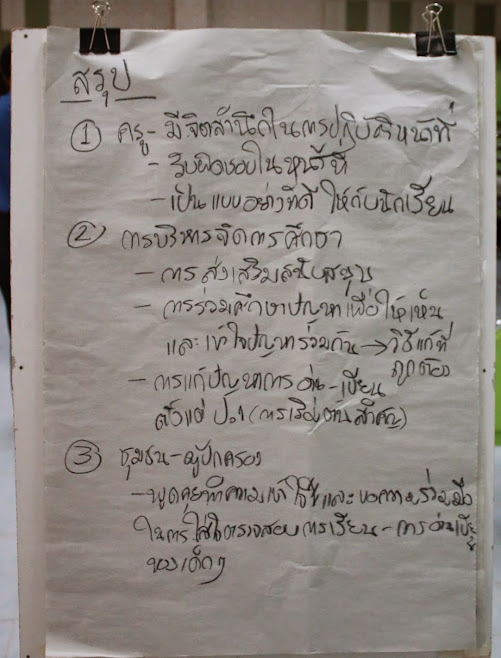 สรุป
① ครู - มีจิตสำนึกในการปฏิบัติหน้าที่
- รับผิดชอบในหน้าที่
- เป็นแบบอย่างที่ดี ให้กับนักเรียน
② การบริหารจัดการศึกษา
- การส่งเสริมสนับสนุน
- การร่วมศึกษาปัญหาเพื่อให้เห็น
และเข้าใจปัญหาร่วมกัน → วิธีแก้ที่
ถูกต้อง
- การแก้ปัญหาการอ่าน - เขียน
ตั้งแต่ ป.1 (การเรียน สำคัญ)
③ ชุมชน - ผู้ปกครอง
- พูดคุยทำความเข้าใจ และ ขอความร่วมมือ
ในการใส่ใจตรวจสอบการเรียน - การอ่านเขียน
ของเด็กๆ